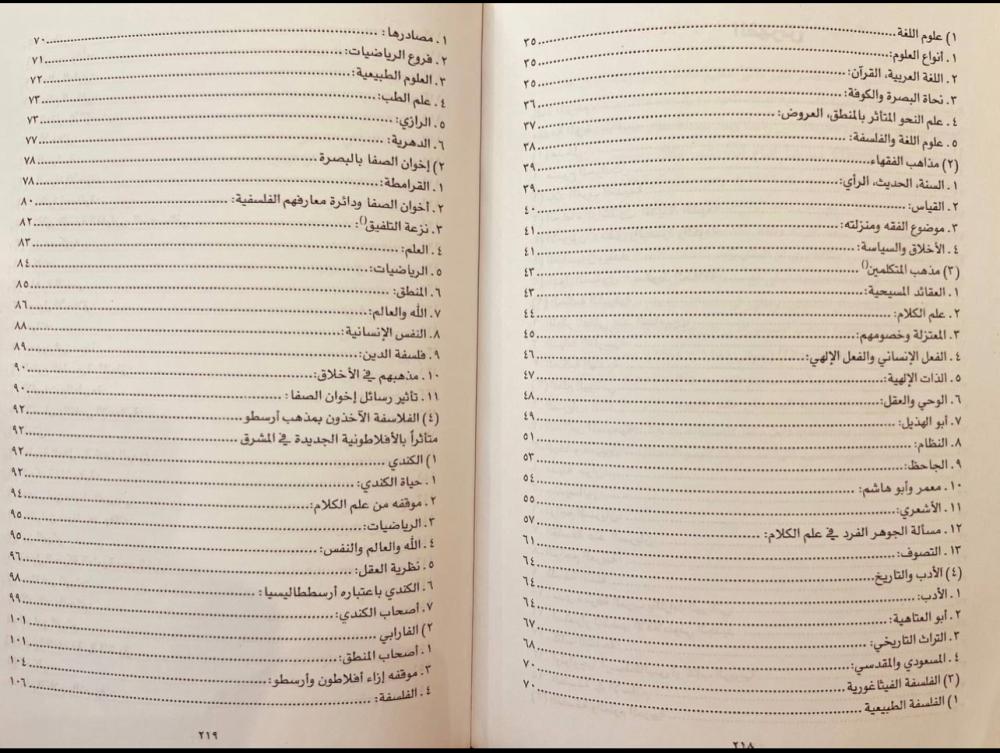 ١) علوم اللغة ........ ٣٥
١. أنواع العلوم: ........ ٣٥
٢. اللغة العربية، القرآن: ........ ٣٥
٣. نحاة البصرة والكوفة: ........ ٣٦
٤. علم النحو المتأثر بالمنطق، العروض: ........ ٣٧
٥. علوم اللغة والفلسفة: ........ ٣٨
(٢) مذاهب الفقهاء ........ ٣٩
١. السنة، الحديث، الرأي: ........ ٣٩
٢. القياس: ........ ٤٠
٣. موضوع الفقه ومنزلته: ........ ٤١
٤. الأخلاق والسياسة: ........ ٤١
(٣) مذهب المتكلمين() ........ ٤٣
١. العقائد المسيحية: ........ ٤٣
٢. علم الكلام: ........ ٤٤
٣. المعتزلة وخصومهم: ........ ٤٥
٤. الفعل الإنساني والفعل الإلهي: ........ ٤٦
٥. الذات الإلهية: ........ ٤٧
٦. الوحي والعقل: ........ ٤٨
٧. أبو الهذيل: ........ ٤٩
٨. النظام: ........ ٥١
٩. الجاحظ: ........ ٥٣
١٠. معمر وأبو هاشم: ........ ٥٤
١١. الأشعري: ........ ٥٥
١٢. مسألة الجوهر الفرد في علم الكلام: ........ ٥٧
١٣. التصوف: ........ ٦١
(٤) الأدب والتاريخ ........ ٦٤
١. الأدب: ........ ٦٤
٢. أبو العتاهية: ........ ٦٤
٣. التراث التاريخي: ........ ٦٧
٤. المسعودي والمقدسي: ........ ٦٨
(٣) الفلسفة الفيثاغورية ........ ٧٠
١) الفلسفة الطبيعية ........ ٧٠
٢١٨
١. مصادرها: ........ ٧٠
٢. فروع الرياضيات: ........ ٧١
٣. العلوم الطبيعية: ........ ٧٢
٤. علم الطب: ........ ٧٣
٥. الرازي: ........ ٧٣
٦. الدهرية: ........ ٧٧
٢) إخوان الصفا بالبصرة ........ ٧٨
١. القرامطة: ........ ٧٨
٢. أخوان الصفا ودائرة معارفهم الفلسفية: ........ ٨٠
٣. نزعة التلفيق(): ........ ٨٢
٤. العلم: ........ ٨٣
٥. الرياضيات: ........ ٨٤
٦. المنطق: ........ ٨٥
٧. الله والعالم: ........ ٨٦
٨. النفس الإنسانية: ........ ٨٨
٩. فلسفة الدين: ........ ٨٩
١٠. مذهبهم في الأخلاق: ........ ٩٠
١١. تأثير رسائل إخوان الصفا: ........ ٩٠
(٤) الفلاسفة الآخذون بمذهب أرسطو ........ ٩٢
متأثراً بالأفلاطونية الجديدة في المشرق ........ ٩٢
١) الكندي ........ ٩٢
١. حياة الكندي: ........ ٩٢
٢. موقفه من علم الكلام: ........ ٩٤
٣. الرياضيات: ........ ٩٥
٤. الله والعالم والنفس: ........ ٩٥
٥. نظرية العقل: ........ ٩٦
٦. الكندي باعتباره أرسططاليسيا: ........ ٩٨
٧. أصحاب الكندي: ........ ٩٩
٢) الفارابي ........ ١٠١
١. أصحاب المنطق: ........ ١٠١
٣. موقفه إزاء أفلاطون وأرسطو: ........ ١٠٤
٤. الفلسفة: ........ ١٠٦
٢١٩